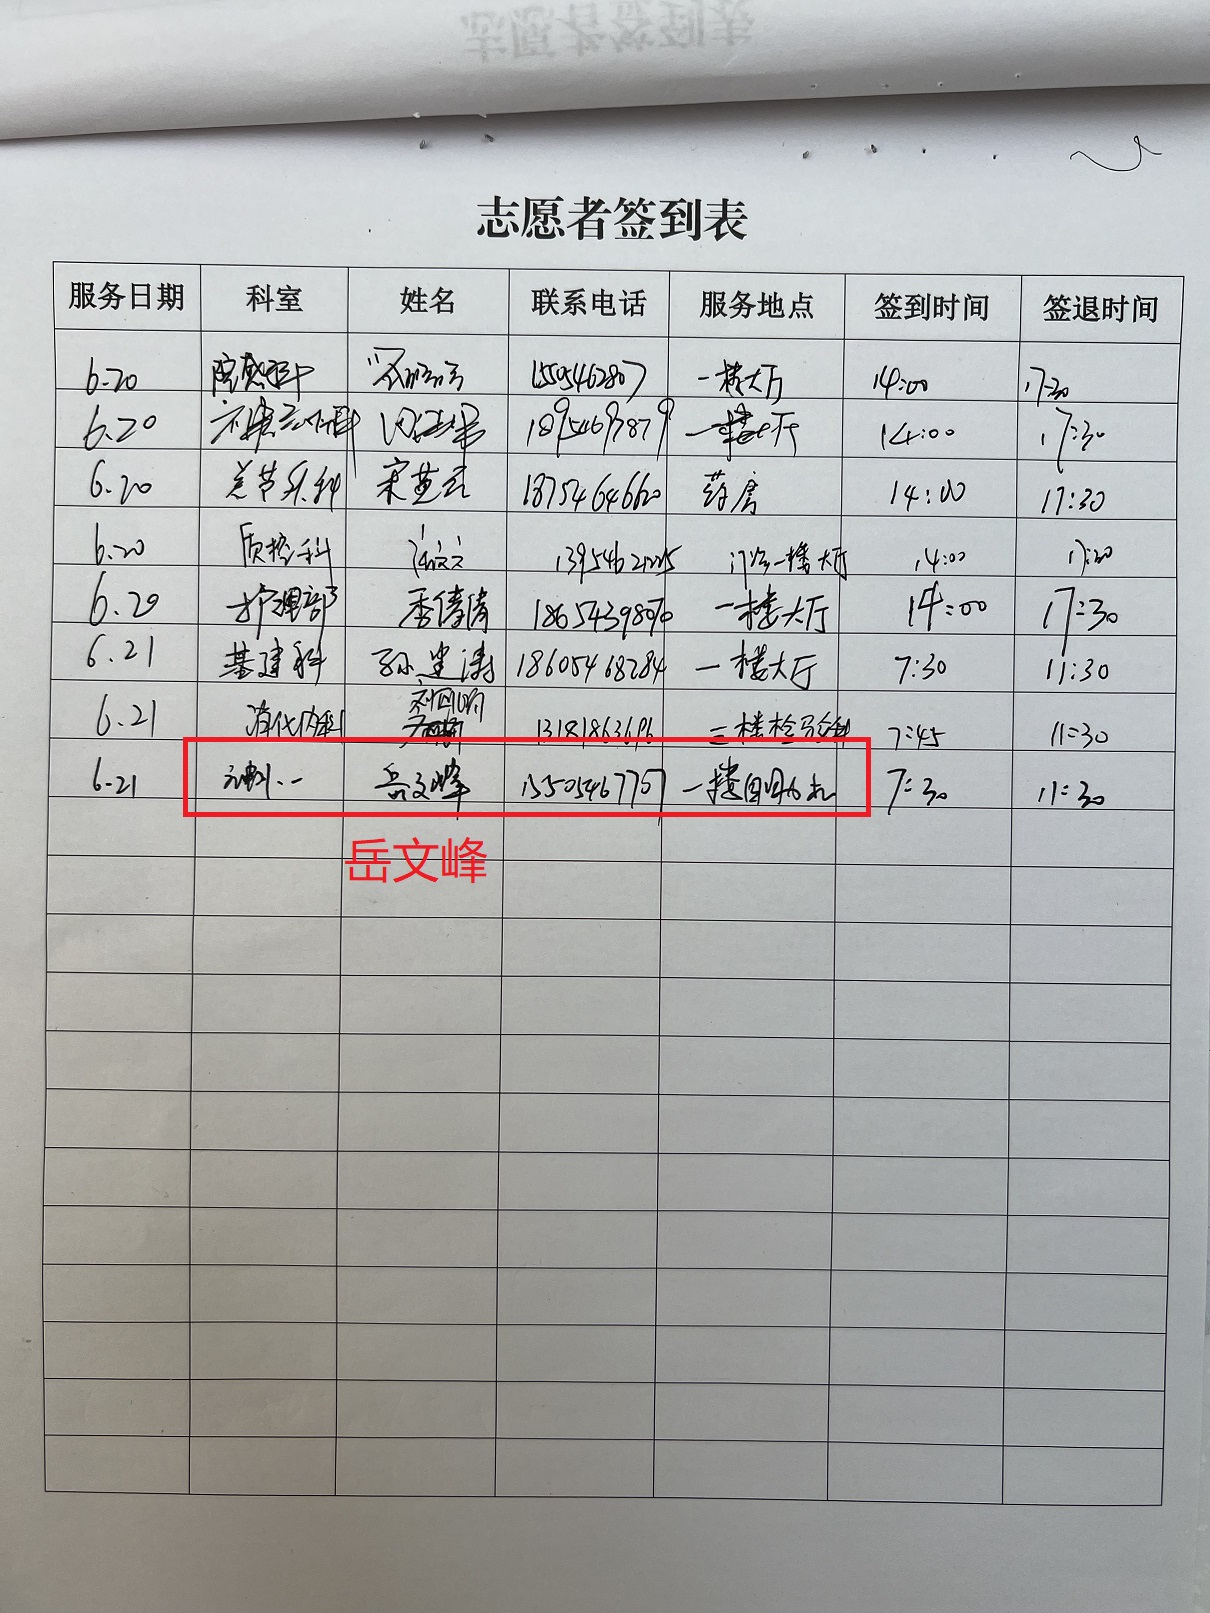 志愿者签到表
服务日期 科室 姓名 联系电话 服务地点 签到时间 签退时间
6.20 院感科 15505462807 一楼大厅 14:00 17:30
6.20 18954697879 一楼大厅 14:00 17:30
6.20 关节外科 宋芝云 18754646620 药房 14:00 17:30
6.20 质控科 门诊一楼大厅 14:00 17:30
6.20 护理部 季倩倩 18654398090 一楼大厅 14:00 17:30
6.21 基建科 孙建涛 18605468284 一楼大厅 7:30 11:30
6.21 消化内科 13181863696 三楼检验科 7:45 11:30
6.21 岳文峰 15505467707 一楼自助机 7:30 11:30
岳文峰